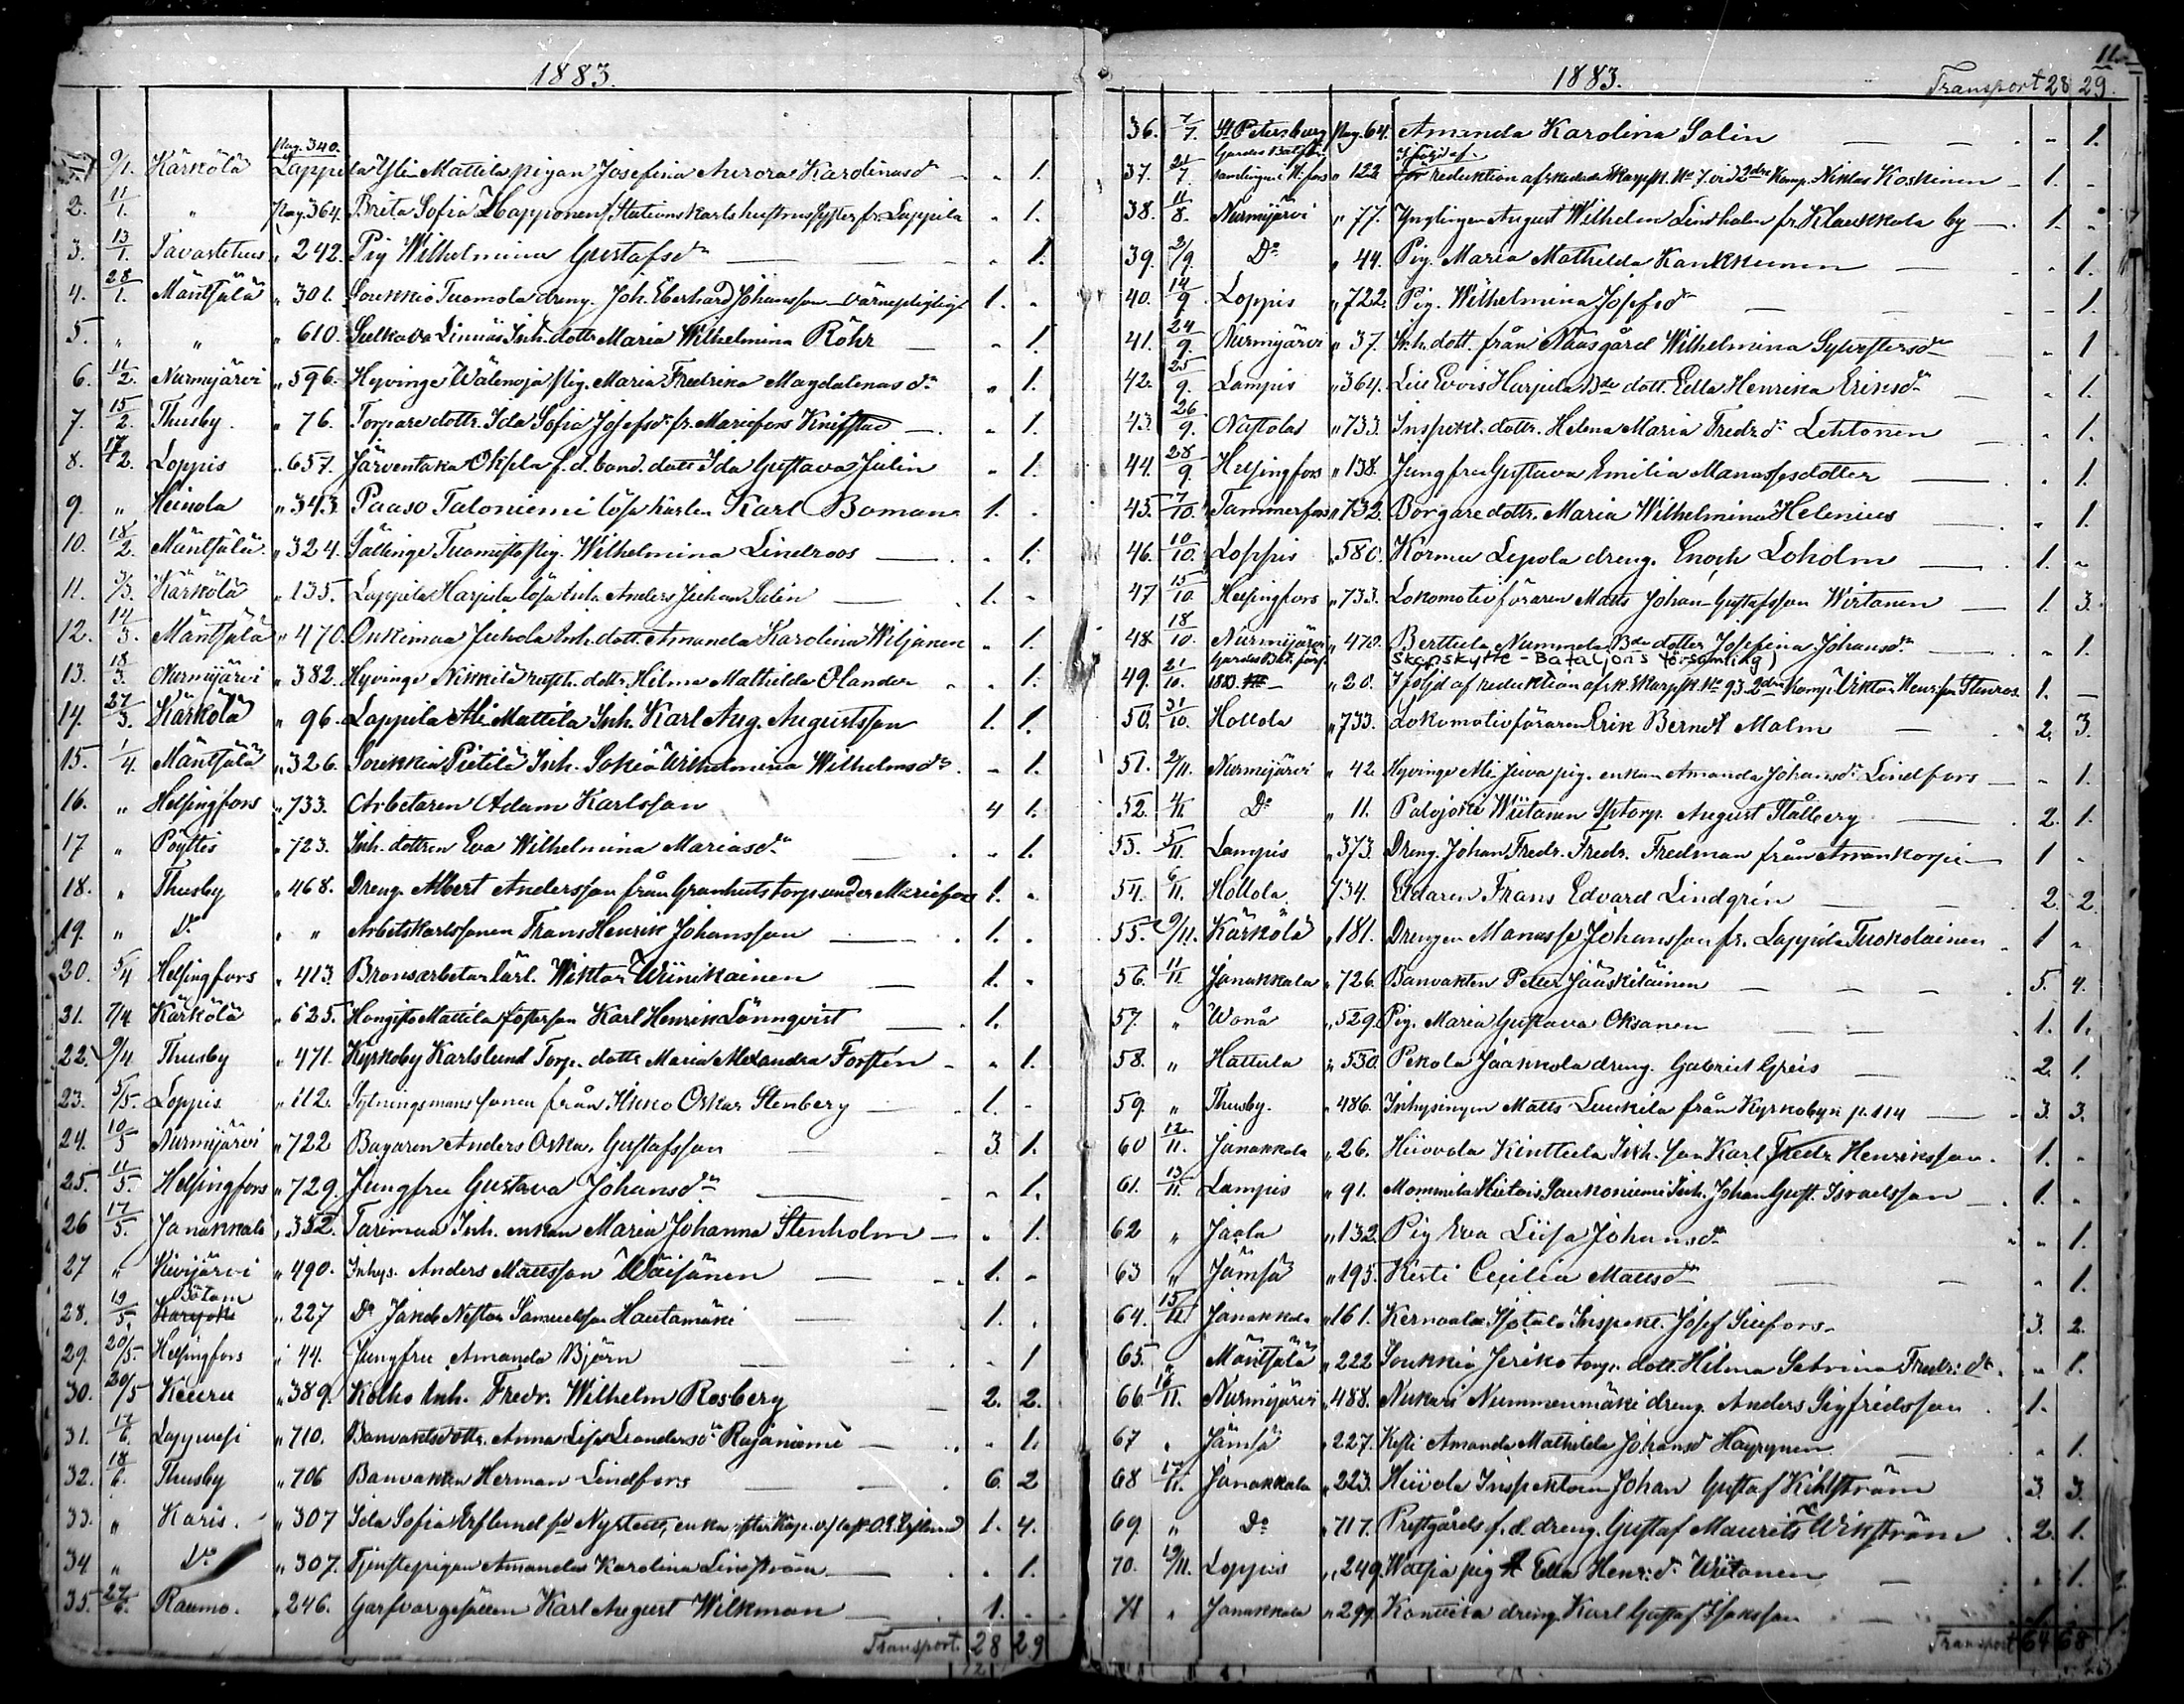 1883.
Pag. 340.
9/1. Kärkölä Lappila Yli Mattila pigan Josefina Aurora Karolinasdr - 1.
2. 11/1. " Pag. 364. Brita Sofia Happonen, Stationskarls hustrus Syster fr. Lappila - 1.
3. 13/1. Tavastehus " 242. Pig Wilhelmina Gustafsdr - 1.
4. 28/1. Mäntsälä " 301. Soukkio Tuomola dreng. Joh. Eberhard Johansson - värnepligtig 1. -
5. " " " 610. Sulkava Linnäs Inh. dottr Maria Wilhelmina Röhr - 1.
6. 11/2. Nurmijärvi " 596. Hyvinge Wälenoja pig. Maria Fredrika Magdalenasdr " 1.
7. 15/2. Thusby. " 76. Torpare dottr. Ida Sofia Josefsdr fr. Mariefors - 1.
8. 17/2. Loppis " 657. Järventaka Oksela f. d. bond. dott Ida Gustava Julin " 1.
9. " Heinola " 343. Paaso Taloniemi lösa karlen Karl Boman 1. -
10. 18/2. Mäntsälä. " 324. Sälinge Tuomisto pig. Wilhelmina Lindroos - 1.
11. 3/3. Kärkölä " 135. Lappila Harjula lösa inh. Anders Johan Salin 1. -
12. 14/3. Mäntsälä " 470. Onkimaa Juhola Inh. dott. Amanda Karolina Wiljanen " 1.
13. 18/3. Nurmijärvi " 382. Hyvinge Nikkilä dottr. Hilma Mathilda Olander " 1.
14. 27/3. Kärkölä " 96. Lappila Ali Mattila Inh. Karl Aug. Augustsson 1. 1.
15. 1/4. Mäntsälä " 326. Soukkio Pietilä Inh. Wilhelmina Wilhelmsdr - 1.
16. " Helsingfors " 733. Arbetaren Adam Karlsson 4 1.
17 " Pöyttis " 723. Inh. dottren Eva Wilhelmina Mariasdr - 1.
18. " Thusby " 468. Dreng. Albert Andersson från Granhults torp under Mariefors 1. -
19. " Do " " Arbetskarlssonen Frans Henrik Johansson 1. -
20. 5/4 Helsingfors " 413. Bronsarbetar lärl. Wiktor Wiinikainen 1. -
21. 7/4 Kärkölä " 625. Hongisto Mattila fosterson Karl Henrik Lönnqvist 1.
22. 9/4 Thusby " 471. Kyrkoby Karlslund Torp. dottr Maria Alexandra Forstén - " 1.
23. 5/5. Loppis " 112. Sytningsmans sonen från Oskar Stenberg 1. -
24. 10/5 Nurmijärvi " 722 Bagaren Anders Oskar Gustafsson 3. 1.
25. 11/5. Helsingfors " 729. Jungfru Gustava Johansdr - 1.
26 17/5. Janakkala " 352. Tarimaa Inh. enkan Maria Johanna Stenholm - 1.
27 " Kivijärvi " 490. Inhys. Anders Mattsson Wäisänen 1. -
28. 19/5. Bötom " 227 Do Jakob Nestor Samuelsson Hautamäki 1. -
29. 20/5. Helsingfors " 44. Jungfru Amanda Björn - 1
30. 20/5 Keuru " 389. Kolho Inh. Fredr. Wilhelm Rosberg 2. 2.
31. 17/6. Lappvesi " 710. Banvaktsdottr. Anna Lisa Leandersdr Rajaniemi - 1.
32. 18/6. Thusby " 706 Banvakten Herman Lindfors 6. 2
33. " Karis. " 307 Ida Sofia född Nystedt, enka efter 1. 4.
34 " Do " 307. Tjenstepigan Amanda Karolina Lindström - 1.
35. 27/6. Raumo. " 246. Garfvaregesällen Karl August Wilkman 1. -
Transport. 28 29
11.
1883. Transport 28 29.
36. 7/7. St Petersburg Pag. 64. Amanda Karolina Salin - 1.
37. 21/7. Gardes Batst: församlingen i H:fors " 122 I följd af reduktion afskedade Skarpsk. No 7 vid 2dra Komp. Niklas Koskinen 1. -
38. 11/8. Nurmijärvi " 77. Ynglingen August Wilhelm Lindholm fr. Klaukkala by 1. -
39. 2/9. Do " 44. Pig. Maria Mathilda Kankkunen - 1.
40. 14/9. Loppis " 722. Pig. Wilhelmina Josefsdr - 1.
41. 24/9. Nurmijärvi " 37. Inh. dott. från Nääsgård Wilhelmina Sylvestersdr - 1
42. 25/9. Lampis " 364. Evois Harjula Bde dott. Edla Henrika Eriksdr - 1.
43. 26/9. Nastola " 733. Inspekt. dottr. Helena Maria Fredrdr Lehtonen - 1.
44. 28/9. Helsingfors " 138. Jungfru Gustava Emilia Manassesdotter - 1.
45. 7/10. Tammerfors " 732. Borgare dottr. Maria Wilhelmina Helenius - 1.
46. 10/10. Loppis " 580. Kormu Lepola dreng. Enoch Loholm 1. -
47 15/10. Helsingfors " 733. Lokomotivföraren Matts Johan Gustafsson Wirtanen 1. 3.
48. 18/10. Nurmijärvi " 470. Berttula Nummela Bde dotter Josefina Johansdr - 1.
Skarpskytte-Bataljons församling)
49. 21/10. Gardes Bat. förs. 1883. " 20. I följd af reduktion afsk. Skarpsk. No 93 2dra Komp. Viktor Henriksson Stenros 1. -
50. 31/10. Hollola " 733. Lokomotivföraren Erik Berndt Malm 2. 3.
51. 2/11. Nurmijärvi " 42 Hyvinge Ali Juva pig. enkan Amanda Johansdr Lindfors - 1.
52. 4/11. Do " 11. Palojoki Wiitanen August Stålberg 2. 1.
53. 5/11. Lampis " 373. Dreng. Johan Fredr. Fredr. Fredman från 1 -
54. 6/11. Hollola. 734. Eldaren Frans Edvard Lindgrén 2. 2.
55. 9/11. Kärkölä " 181. Drengen Manasse Johansson fr. Lappila Tuokolainen 1 -
56. 11/11. Janakkala " 726. Banvakten Petter Jääskeläinen 5. 4.
57. " Wonå " 529. Pig. Maria Gustava Oksanen 1. 1.
58. " Hattula " 530. Pekola Jaakkola dreng. Gabriel Greis 2. 1.
59. " Thusby. " 486. Inhysingen Matts Luukila från Kyrkobyn p. 114 3. 3.
60 12/11. Janakkala " 26. Hiivola Kinttula Inh. son Karl Fredr Henriksson. 1. -
61. 13/11. Lampis " 91. Mommila Saukoniemi Inh. Johan Gust. Israelsson 1. -
62 " Jaala " 132. Pig Eva Liisa Johansdr - 1.
63 " Jämsä " 195. Kesti Cecilia Mattsdr - 1.
64. 15/11 Janakkala " 161. Kernaala Isotalo Inspekt. Josef 3. 2.
65. " Mäntsälä " 222 Soukkio Jeriko torp. dott. Hilma Sabrina Fredr: dr. " 1.
66 16/11. Nurmijärvi " 488. Nukari Nummenmäki dreng. Anders Sigfridsson 1.
67 " Jämsä " 227. Kesti Amanda Mathilda Johansdr Häyrynen - 1.
68 17/11. Janakkala " 223. Hiivola Inspektoren Johan Gustaf Kihlström 3. 3.
69. " Do " 717. Prestgårds f. d. dreng. Gustaf Maurits Wikström 2. 1.
70. 19/11. Loppis " 249. pig Edla Henr: dr Wiitanen - 1.
71 " Janakkala " 299. dreng. Karl Gustaf Isaksson
Transport 64 68